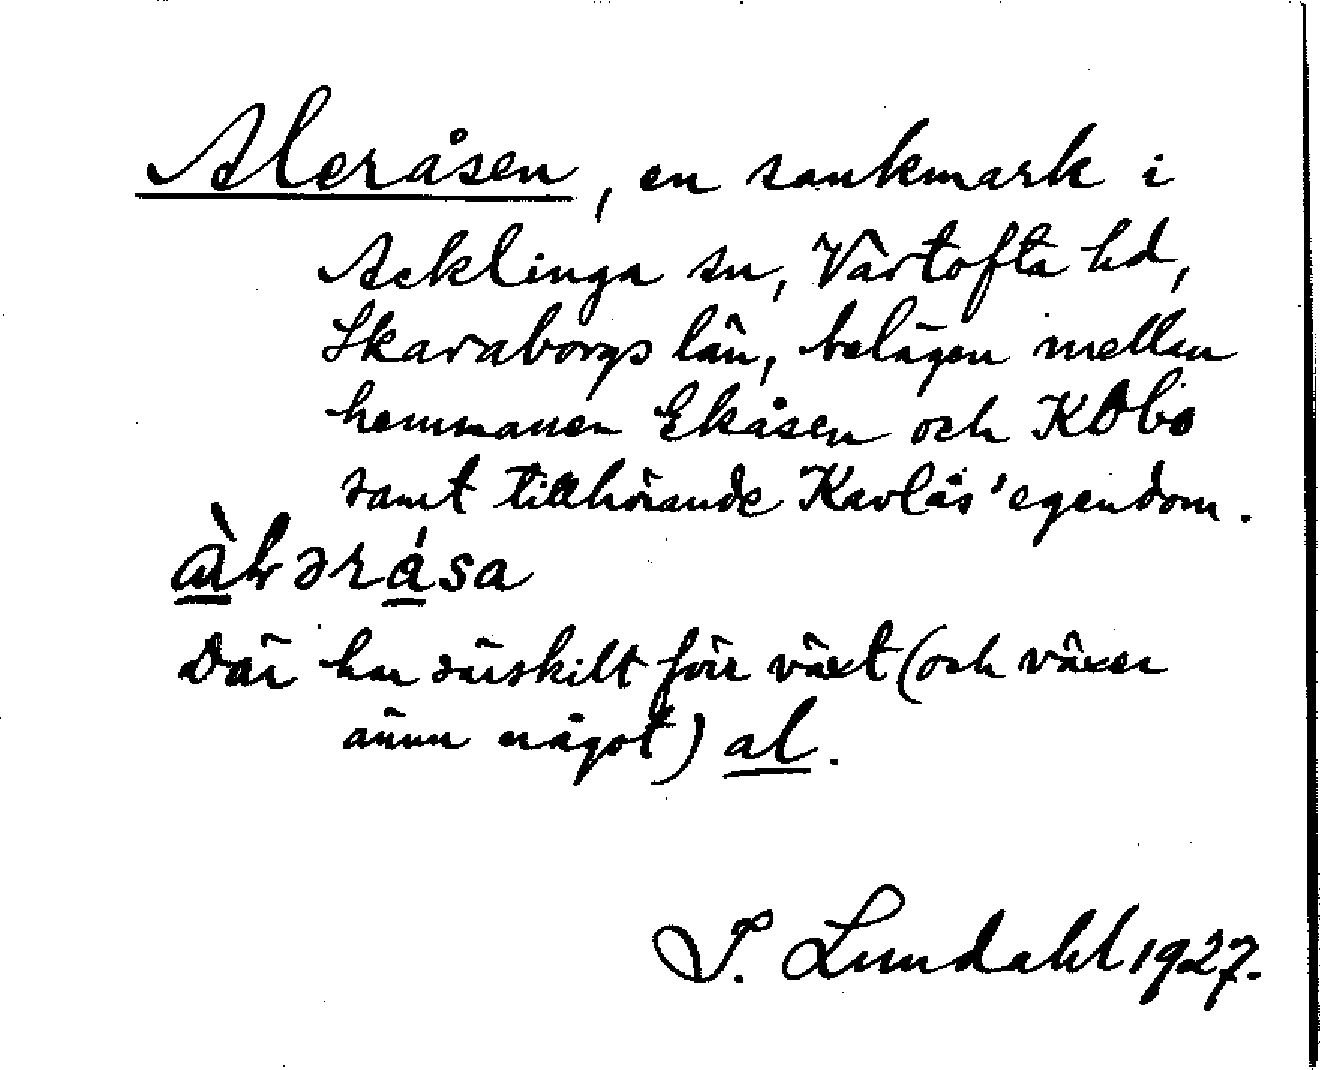 Aleråsen, en sankmark i
Acklinga sn, Vartofta hd,
Skaraborgs län, belägen mellan
hemmanen Ekåsen och
samt tillhörande Kavlås' egendom.
Där har särskilt förr växt (och växer
ännu något) al.
I. Lundahl 1927.